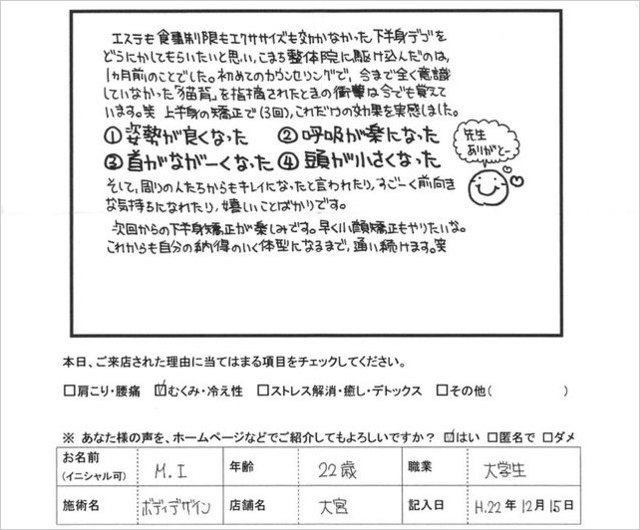 エステも食事制限もエクササイズも効かなかった下半身デブを
どうにかしてもらいたいと思い、こまち整体院に駆け込んだのは、
1ヵ月前のことでした。初めてのカウンセリングで、今まで全く意識
していなかった「猫背」を指摘されたときの衝撃は今でも覚えて
います。笑 上半身の矯正で(3回)、これだけの効果を実感しました。
①姿勢が良くなった ②呼吸が楽になった
③首がながーくなった ④頭が小さくなった
先生
ありがとー
そして、周りの人たちからもキレイになったと言われたり、すごーく前向き
な気持ちになれたり、嬉しいことばかりです。
次回からの下半身矯正が楽しみです。早く小顔矯正もやりたいな。
これからも自分の納得のいく体型になるまで、通い続けます。笑
本日、ご来店された理由に当てはまる項目をチェックしてください。
□肩こり・腰痛 ☑むくみ・冷え性 □ストレス解消・癒し・デトックス □その他( )
※ あなた様の声を、ホームページなどでご紹介してもよろしいですか? ☑はい □匿名で □ダメ
お名前 (イニシャル可) M.I 年齢 22歳 職業 大学生
施術名 ボディデザイン 店舗名 大宮 記入日 H.22年12月15日